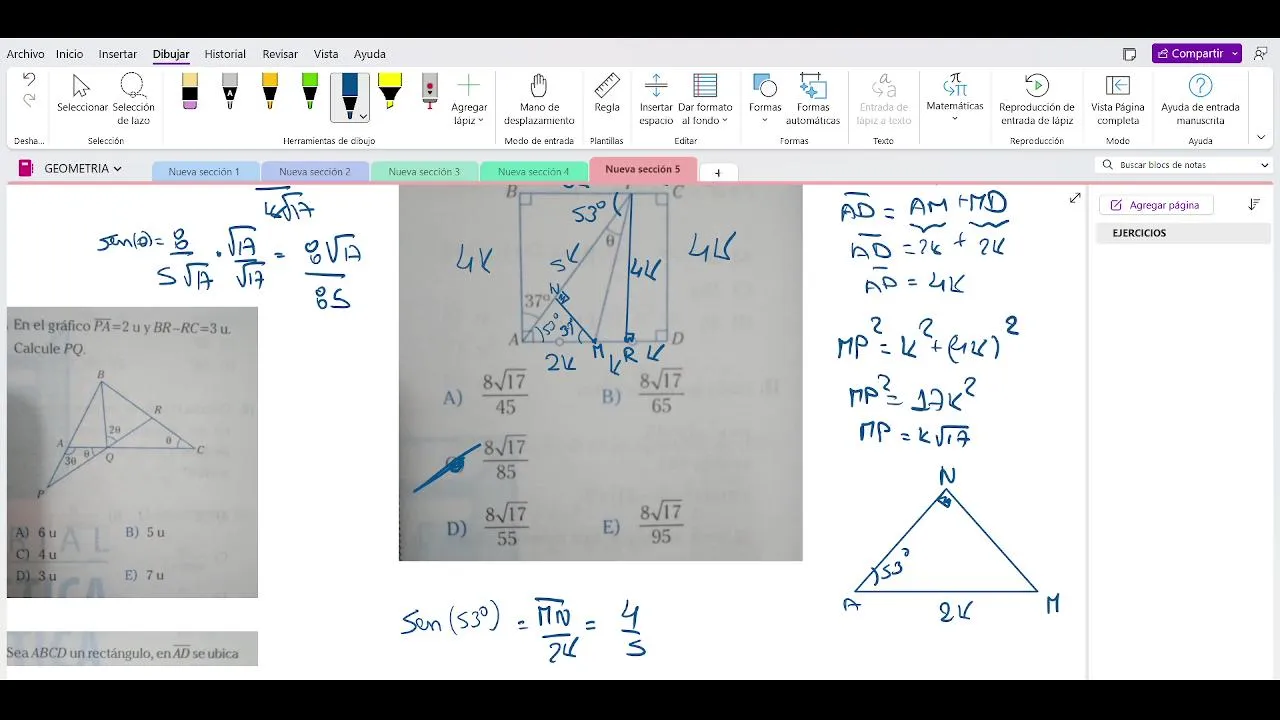 Archivo Inicio Insertar Dibujar Historial Revisar Vista Ayuda
Compartir
Seleccionar
Selección de lazo
Agregar lápiz
Mano de desplazamiento
Regla
Insertar espacio
Dar formato al fondo
Formas
Formas automáticas
Entrada de lápiz a texto
Matemáticas
Reproducción de entrada de lápiz
Vista Página completa
Ayuda de entrada manuscrita
Desha...
Selección
Herramientas de dibujo
Modo de entrada
Plantillas
Editar
Formas
Texto
Reproducción
Modo
Ayuda
GEOMETRIA
Nueva sección 1
Nueva sección 2
Nueva sección 3
Nueva sección 4
Nueva sección 5
+
Buscar blocs de notas
Agregar página
EJERCICIOS
k√17
Sen(θ) = 8/5√17 · √17/√17 = 8√17/85
En el gráfico PA=2 u y BR−RC=3 u.
Calcule PQ.
B
R
2θ
A
θ
C
3θ
θ
Q
P
A) 6 u B) 5 u
C) 4 u
D) 3 u E) 7 u
Sea ABCD un rectángulo, en AD se ubica
B
C
53°
θ
4K
5K
4K
4K
N
37°
53°
37°
A
M
R
D
2K
K
K
A) 8√17/45 B) 8√17/65
8√17/85
D) 8√17/55 E) 8√17/95
Sen(53°) = MN/2K = 4/5
AD = AM + MD
AD = 2K + 2K
AD = 4K
MP² = K² + (4K)²
MP² = 17K²
MP = K√17
N
53°
A
2K
M